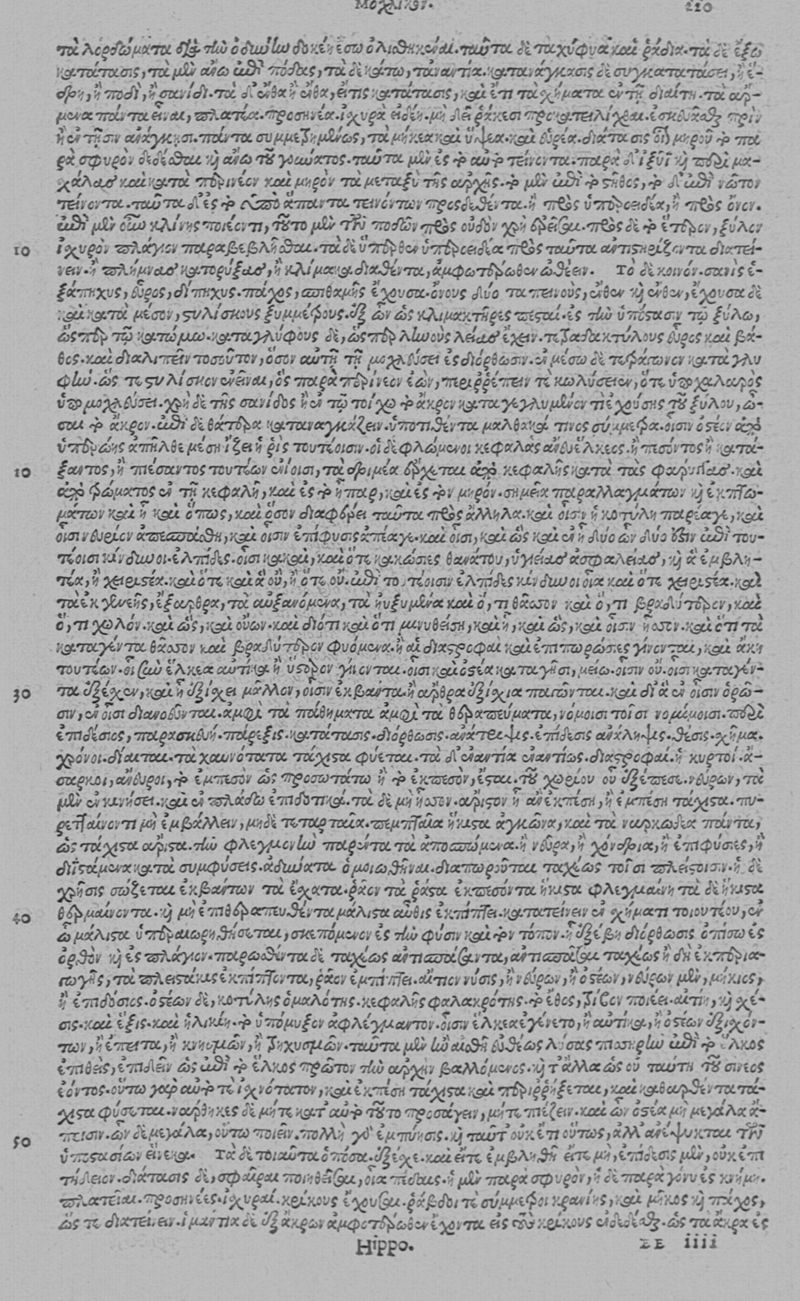 Μοχλικόν. 110
τὰ λορδώματα διὰ τὴν ὁδὸν ἣν δοκέῃ ἔσω ὀλισθηκέναι. ταῦτα δὲ τὰ κυφὰ καὶ ῥᾴδια. τὰ δὲ ἔξω
κατάτασις, τὰ μὲν ἄνω ἐπὶ πόδας, τὰ δὲ κάτω, τἀναντία. κατανάγκασις δὲ συγκατατάσει, ἢ ἕ-
δρῃ, ἢ ποδὶ, ἢ σανίδι. τὰ δ' ἔνθα ἢ ἔνθα, εἴ τις κατάτασις, καὶ ἔτι τὰ σχήματα ἐν τῇ διαίτῃ. τὰ ἄρ-
μενα πάντα εἶναι, πλατέα. προσηνέα. ἰσχυρὰ εἰ δὲ μὴ δεῖ ῥάκεσι προκατειλίχθαι. ἐσκευάσθαι πρὶν
ἢ ἐν τῇσιν ἀνάγκῃσι. πάντα συμμεμετρημένως, τὰ μήκεα καὶ ὕψεα. καὶ εὐρέα. διάτασις οἷον μηροῦ τὸ πα
ρὰ σφυρὸν δεδέσθαι καὶ ἄνω τοῦ γούνατος. ταῦτα μὲν ἐς τὸ αὐτὸ τείνοντα. παρὰ δὲ ἰξυῒ καὶ περὶ μα-
χάλας καὶ κατὰ περίνεον καὶ μηρὸν τὰ μεταξὺ τῆς ἀρχῆς. τὸ μὲν ἐπὶ τὸ στῆθος, τὸ δ' ἐπὶ νῶτον
τείνοντα. ταῦτα δ' ἐς τὸ αὐτὸ ἅπαντα τεινόντων προσδεθέντα. ἢ πρὸς ὑπεροειδέα, ἢ πρὸς ὄνον.
ἐπὶ μὲν οὖν κλίνης ποιέοντι, τοῦτο μὲν τῶν ποδῶν πρὸς οὐδὸν χρὴ ἐρεῖσαι. πρὸς δὲ τὸ ἕτερον, ξύλον
10 ἰσχυρὸν πλάγιον παραβεβλῆσθαι. τὰ δὲ ὑπέρθεν ὑπεροειδέα πρὸς ταῦτα ἀντιστηρίζοντα διατεί-
νειν. ἢ πλήμνας κατορύξας, ἢ κλίμακα διαθέντα, ἀμφοτέρωθεν ὠθέειν. Τὸ δὲ κοινόν. σανὶς ἑ-
ξάπηχυς, εὖρος, δίπηχυς. πάχος, σπιθαμῆς ἔχουσα. ὄνους δύο ταπεινοὺς, ἔνθεν καὶ ἔνθεν, ἔχουσα δὲ
καὶ κατὰ μέσον, στυλίσκους ξυμμέτρους. ἐξ ὧν ὡς κλιμακτῆρες πεσεῖται. ἐς τὴν ὑπόστασιν τῷ ξύλῳ,
ὥσπερ τῷ κατ' ὦμον. καταγλύφους δὲ, ὥσπερ ληνοὺς λείας ἔχειν. τετραδακτύλους εὖρος καὶ βά-
θος. καὶ διαλιπεῖν τοσοῦτον, ὅσον αὐτῇ τῇ μοχλεύσει ἐς διόρθωσιν. ἐν μέσῳ δὲ τετράγωνον καταγλυ
φὴν. ὥς τε στυλίσκον ἐνεῖναι, ὃς παρὰ περίνεον ἐὼν, περιρρέπειν τε κωλύσει ἐὼν, ὅτε ὑποχαλαρὸς
ὑπομοχλεύσει. χρὴ δὲ τῆς σανίδος ἢ ἐν τῷ τοίχῳ τὸ ἄκρον καταγεγλυμμένον τι ἐχούσης τοῦ ξύλου, ὦ-
σαι τὸ ἄκρον. ἐπὶ δὲ θάτερα καταναγκάζειν. ὑποτιθέντα μαλθακά τινος σύμμετρα. οἷσιν ὀστέον ἀπὸ
ὑπερῴης ἀπῆλθε μέση ἵζει ἡ ῥὶς τουτέοισιν. οἱ δὲ φλώμενοι κεφαλὰς ἄνευ ἕλκεος. ἢ πεσόντος ἢ κατά-
10 ξαντος, ἢ πιέσαντος τουτέων ἐνίοισι, τὰ δριμέα ἔρχεται ἀπὸ κεφαλῆς κατὰ τὰς φάρυγγας. καὶ
ἀπὸ τρώματος ἐν τῇ κεφαλῇ, καὶ ἐς τὸ ἧπαρ, καὶ ἐς τὸν μηρόν. σημεῖα παραλλαγμάτων καὶ ἐκπτω-
μάτων καὶ ᾗ καὶ ὅπως, καὶ ὅσον διαφέρει ταῦτα πρὸς ἄλληλα. καὶ οἷσιν ἡ κοτύλη παρέαγε, καὶ
οἷσι νευρίον ἀπεσπάσθη, καὶ οἷσιν ἐπίφυσις ἀπέαγε. καὶ οἷσι, καὶ ὡς καὶ ἓν ἢ δύο ὧν δύο ἐστὶν ἐπὶ του-
τέοισι κίνδυνοι. ἐλπίδες. οἷσι κακαὶ, καὶ ὅτε κακώσιες θανάτου, ὑγιείας ἀσφαλείας, καὶ ἃ ἐμβλη-
τέα, ἢ χειριστέα. καὶ ὅτε καὶ ἃ οὒ, ἢ ὅτε οὔ. ἐπὶ τουτέοισιν ἐλπίδες κίνδυνοι οἷα καὶ ὅτε χειριστέα. καὶ
τὰ ἐκ γενεῆς, ἔξαρθρα, τὰ αὐξανόμενα, τὰ ηὐξημένα καὶ ὅ, τι θᾶσσον καὶ ὅ, τι βραδύτερον, καὶ
ὅ, τι χωλόν. καὶ ὡς, καὶ οὐ ὧν. καὶ διότι καὶ ὅτι μινυθείση, καὶ ᾗ, καὶ ὡς, καὶ οἷσιν ἧσσον. καὶ ὅτι τὰ
καταγέντα θᾶσσον καὶ βραδύτερον φυόμενα. ἢ αἱ διαστροφαὶ καὶ ἐπιπωρώσεις γίνονται, καὶ ἄκη
τουτέων. οἷσιν ἕλκεα αὐτίκα ἢ ὕστερον γίνονται. οἷσι καὶ ὀστέα κατεαγῇσι, μείω. οἷσιν οὔ. οἷσι καταγέν-
30 τα ἐξέχων, καὶ ᾗ ἐξίσχει μᾶλλον, οἷσιν ἐκβάντα. ἢ ἄρθρα ἐξίσχια πατῶνται. καὶ δι' ἃ ἐν οἷσιν ὁρῶ-
σιν, ἐν οἷσι διανοεῦνται. ἀμφὶ τὰ παθήματα ἀμφὶ τὰ θεραπεύματα, νόμοισι τοῖσι νομίμοισι. περὶ
ἐπιδέσιος, παρασκευή. πάρεξις. κατάτασις. διόρθωσις. ἀνάτριψις. ἐπίδεσις ἀνάληψις. θέσις. σχῆμα.
χρόνοι. δίαιται. τὰ χαυνότατα τάχιστα φύεται. τὰ δ' ἐναντία ἐναντίως. διαστροφαί. ᾗ κυρτοί. ἄ-
σαρκοι, ἄνευροι, τὸ ἐμπεσὸν ὡς προσωτάτω ἢ τὸ ἐκπεσὸν, ἔσται. τοῦ χωρίου οὗ ἐξέπεσε. νεύρων, τὰ
μὲν ἐν κινήσει. καὶ ἐν πλάδῳ ἐπιδοτικά. τὰ δὲ μὴ ἧσσον. ἄριστον ᾗ ἂν ἐκπέσῃ, ἢ ἐμπέσῃ τάχιστα. πυ-
ρεταίνοντι μὴ ἐμβάλλειν, μηδὲ τεταρταῖα. πεμπταῖα ἥκιστα ἀγκῶνα, καὶ τὰ ναρκώδεα πάντα,
ὡς τάχιστα ἄριστα. τὴν φλεγμονὴν παρέντα τὰ ἀποσπώμενα. ἢ νεῦρα, ἢ χόνδρια, ἢ ἐπιφύσιες, ἢ
διϊστάμενα κατὰ συμφύσεις. ἀδύνατα ὁμοιωθῆναι. διαπωροῦται ταχέως τοῖσι πλείστοισιν. ἡ δὲ
χρῆσις σώζεται ἐκβάντων τὰ ἔσχατα. ῥᾷον τὰ ῥᾷστα ἐκπεσόντα ἥκιστα φλεγμαίνῃ τὰ δὲ ἥκιστα
40 θερμαίνονται. καὶ μὴ ἐπιθεραπευθέντα μάλιστα αὖθις ἐκπίπτει. κατατείνειν ἐν σχήματι τοιουτέῳ, ἐν
ᾧ μάλιστα ὑπεραιωρηθήσεται, σκεπτόμενον ἐς τὴν φύσιν καὶ τὸν τόπον. ᾗ ἐξέβη διόρθωσις ὀπίσω ἐς
ὀρθὸν καὶ ἐς πλάγιον. παρωθέντα δὲ ταχέως ἀντισπάσαντα, ἀντισπάσαι ταχέως ἢ δὴ ἐκ περια-
γωγῆς, τὰ πλειστάκις ἐκπίπτοντα, ῥᾷον ἐμπίπτει. αἴτιον νύσις, ἢ νεύρων, ἢ ὀστέων, νεύρων μὲν, μήκιος,
ἢ ἐπίδοσιος. ὀστέων δὲ, κοτύλης ὁμαλότης. κεφαλῆς φαλακρότης. τὸ ἔθος, τρίβον ποιέει. αἰτίη, καὶ σχέ-
σις. καὶ ἕξις. καὶ ἡλικίη. τὸ ὑπόμυξον ἀφλέγμαντον. οἷσιν ἕλκεα ἐγένετο, ἢ αὐτίκα, ἢ ὀστέων ἐξισχόν-
των, ἢ ἔπειτα, ἢ κνησμῶν, ἢ τρηχυσμῶν. ταῦτα μὲν ἢν αἴσθῃ εὐθέως λύσας πισσηρὴν ἐπὶ τὸ ἕλκος
ἐπιθεὶς, ἐπιδεῖν ὡς ἐπὶ τὸ ἕλκος πρῶτον τὴν ἀρχὴν βαλλόμενος. καὶ τἄλλα ὡς οὐ ταύτῃ τοῦ σίνεος
ἐόντος. οὕτω γὰρ αὐτό τε ἰσχνότατον, καὶ ἐκπέσῃ τάχιστα καὶ περιρρήξεται, καὶ καθαρθέντα τά-
χιστα φύσεται. νάρθηκες δὲ μήτε κατ' αὐτὸ τοῦτο προσάγειν, μήτε πιέζειν. καὶ ὧν ὀστέα μὴ μεγάλα ἄ-
50 πεισιν. ὧν δὲ μεγάλα, οὕτω ποιεῖν. πολλὴ γὰρ ἐμπύησις. καὶ ταῦτ' οὐκ ἔτι οὕτως, ἀλλ' ἀνέψυκται τῶν
ὑποστασίων εἵνεκα. Τὰ δὲ τοιαῦτα ὁπόσα ἐξέχει. καὶ εἴτε ἐμβληθῇ εἴτε μὴ, ἐπίδεσις μὲν, οὐκ ἐπι
τήδειον. διάτασις δὲ, σφαῖραι ποιηθεῖσαι, οἷα πέδαις. ἡ μὲν παρὰ σφυρὸν, ἡ δὲ παρὰ γόνυ ἐς κνήμην.
πλατεῖαι. προσηνέες. ἰσχυραί. κρίκους ἔχουσαι. ῥάβδοι τε σύμμετροι κρανίης, καὶ μῆκος καὶ πάχος,
ὥς τε διατείνειν. ἱμάντια δὲ ἐξ ἄκρων ἀμφοτέρωθεν ἔχοντα εἰς τοὺς κρίκους ἐνδεδέσθαι. ὡς τὰ ἄκρα ἐς
Hippo. EE iiii